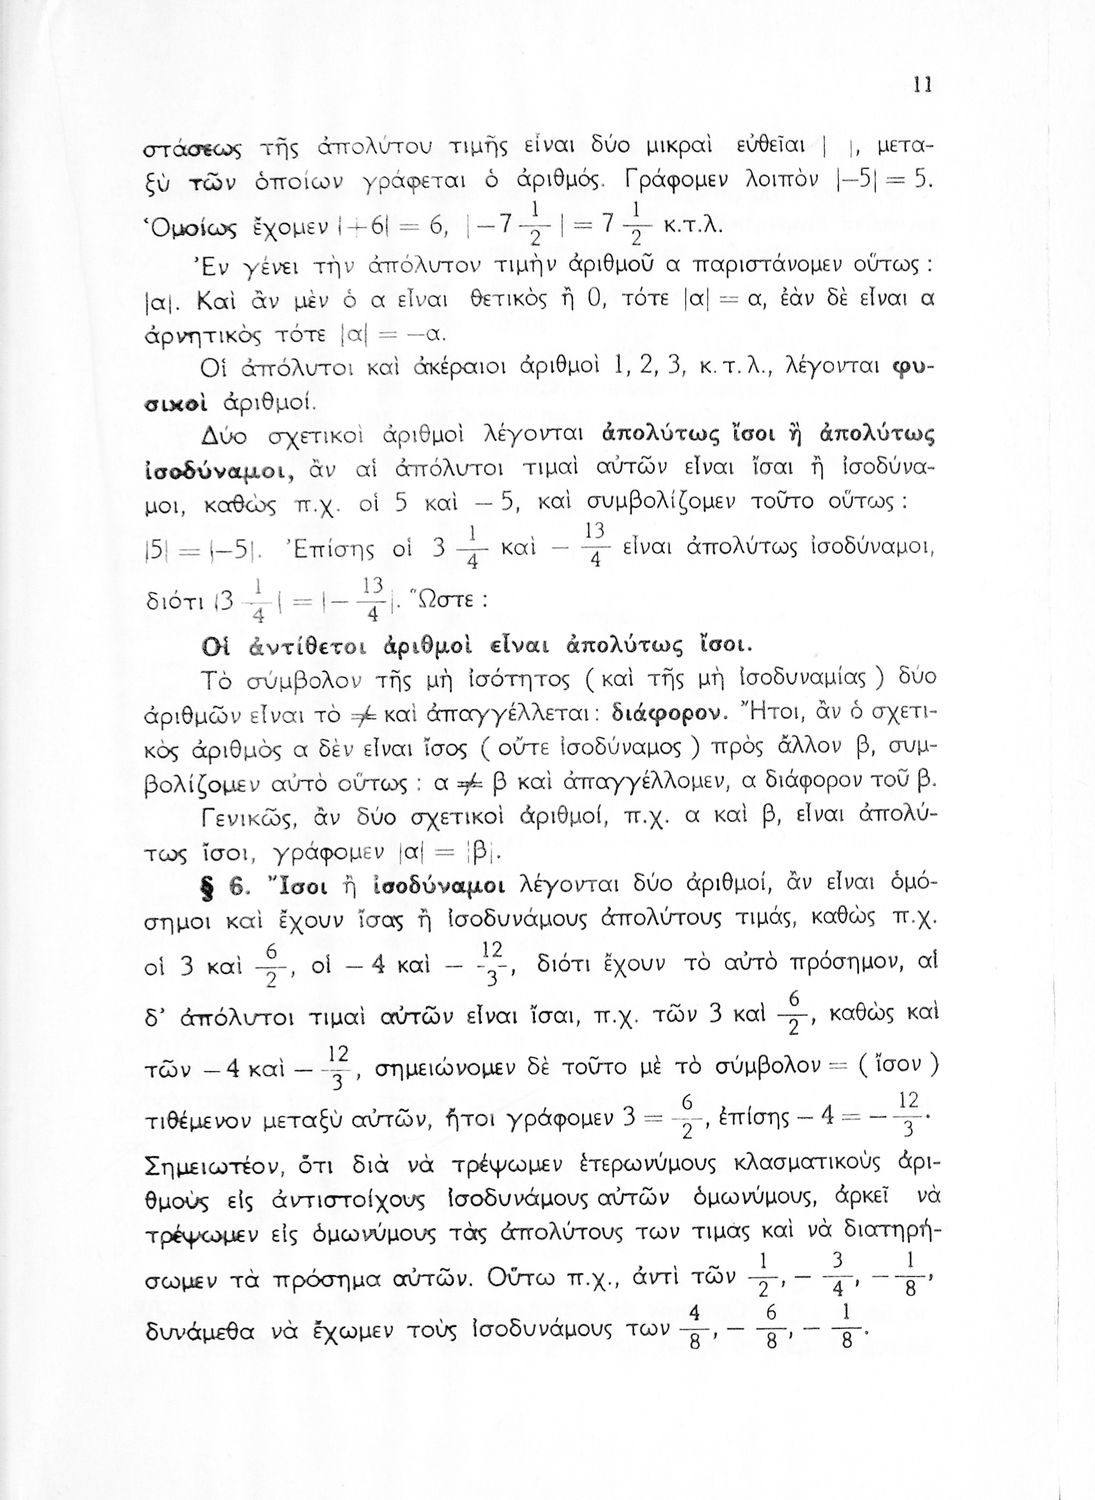 11
στάσεως τῆς ἀπολύτου τιμῆς εἶναι δύο μικραὶ εὐθεῖαι | |, μετα-
ξὺ τῶν ὁποίων γράφεται ὁ ἀριθμός. Γράφομεν λοιπὸν |—5| = 5.
Ὁμοίως ἔχομεν |+6| = 6, |—7 1/2| = 7 1/2 κ.τ.λ.
Ἐν γένει τὴν ἀπόλυτον τιμὴν ἀριθμοῦ α παριστάνομεν οὕτως :
|α|. Καὶ ἂν μὲν ὁ α εἶναι θετικὸς ἢ 0, τότε |α| = α, ἐὰν δὲ εἶναι α
ἀρνητικὸς τότε |α| = —α.
Οἱ ἀπόλυτοι καὶ ἀκέραιοι ἀριθμοὶ 1, 2, 3, κ.τ.λ., λέγονται φυ-
σικοὶ ἀριθμοί.
Δύο σχετικοὶ ἀριθμοὶ λέγονται ἀπολύτως ἴσοι ἢ ἀπολύτως
ἰσοδύναμοι, ἂν αἱ ἀπόλυτοι τιμαὶ αὐτῶν εἶναι ἴσαι ἢ ἰσοδύνα-
μοι, καθὼς π.χ. οἱ 5 καὶ — 5, καὶ συμβολίζομεν τοῦτο οὕτως :
|5| = |—5|. Ἐπίσης οἱ 3 1/4 καὶ — 13/4 εἶναι ἀπολύτως ἰσοδύναμοι,
διότι |3 1/4| = |— 13/4|. Ὥστε :
Οἱ ἀντίθετοι ἀριθμοὶ εἶναι ἀπολύτως ἴσοι.
Τὸ σύμβολον τῆς μὴ ἰσότητος ( καὶ τῆς μὴ ἰσοδυναμίας ) δύο
ἀριθμῶν εἶναι τὸ ≠ καὶ ἀπαγγέλλεται : διάφορον. Ἤτοι, ἂν ὁ σχετι-
κὸς ἀριθμὸς α δὲν εἶναι ἴσος ( οὔτε ἰσοδύναμος ) πρὸς ἄλλον β, συμ-
βολίζομεν αὐτὸ οὕτως : α ≠ β καὶ ἀπαγγέλλομεν, α διάφορον τοῦ β.
Γενικῶς, ἂν δύο σχετικοὶ ἀριθμοί, π.χ. α καὶ β, εἶναι ἀπολύ-
τως ἴσοι, γράφομεν |α| = |β|.
§ 6. Ἴσοι ἢ ἰσοδύναμοι λέγονται δύο ἀριθμοί, ἂν εἶναι ὁμό-
σημοι καὶ ἔχουν ἴσας ἢ ἰσοδυνάμους ἀπολύτους τιμάς, καθὼς π.χ.
οἱ 3 καὶ 6/2, οἱ — 4 καὶ — 12/3, διότι ἔχουν τὸ αὐτὸ πρόσημον, αἱ
δ' ἀπόλυτοι τιμαὶ αὐτῶν εἶναι ἴσαι, π.χ. τῶν 3 καὶ 6/2, καθὼς καὶ
τῶν — 4 καὶ — 12/3, σημειώνομεν δὲ τοῦτο μὲ τὸ σύμβολον = ( ἴσον )
τιθέμενον μεταξὺ αὐτῶν, ἤτοι γράφομεν 3 = 6/2, ἐπίσης — 4 = — 12/3.
Σημειωτέον, ὅτι διὰ νὰ τρέψωμεν ἑτερωνύμους κλασματικοὺς ἀρι-
θμοὺς εἰς ἀντιστοίχους ἰσοδυνάμους αὐτῶν ὁμωνύμους, ἀρκεῖ νὰ
τρέψωμεν εἰς ὁμωνύμους τὰς ἀπολύτους των τιμὰς καὶ νὰ διατηρή-
σωμεν τὰ πρόσημα αὐτῶν. Οὕτω π.χ., ἀντὶ τῶν 1/2, — 3/4, — 1/8,
δυνάμεθα νὰ ἔχωμεν τοὺς ἰσοδυνάμους των 4/8, — 6/8, — 1/8.